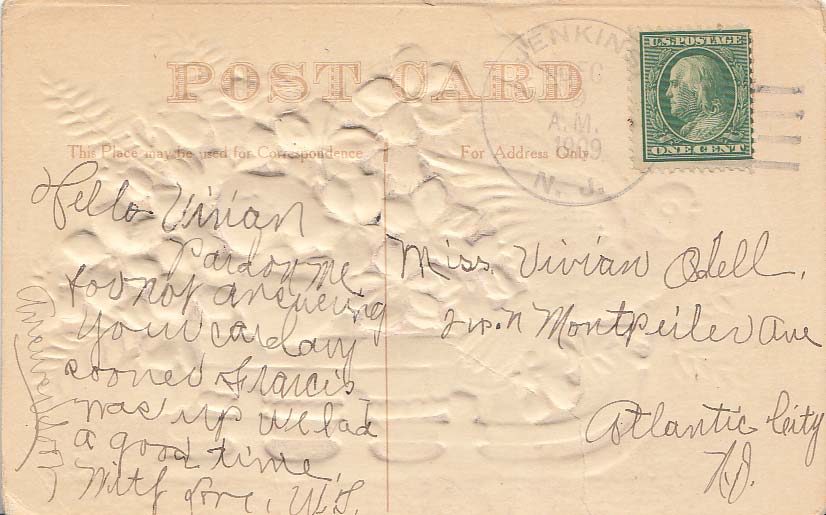 POST CARD
JENKIN
DEC
9
A.M.
1909
N. J.
U.S. POSTAGE
ONE CENT
This Place may be used for Correspondence
For Address Only
Hello Vivian
Pardon me
for not answering
your card any
sooner Francis
was up we had
a good time.
With Love,
Miss. Vivian Odell,
N Montpeiler Ave
Atlantic City
N.J.